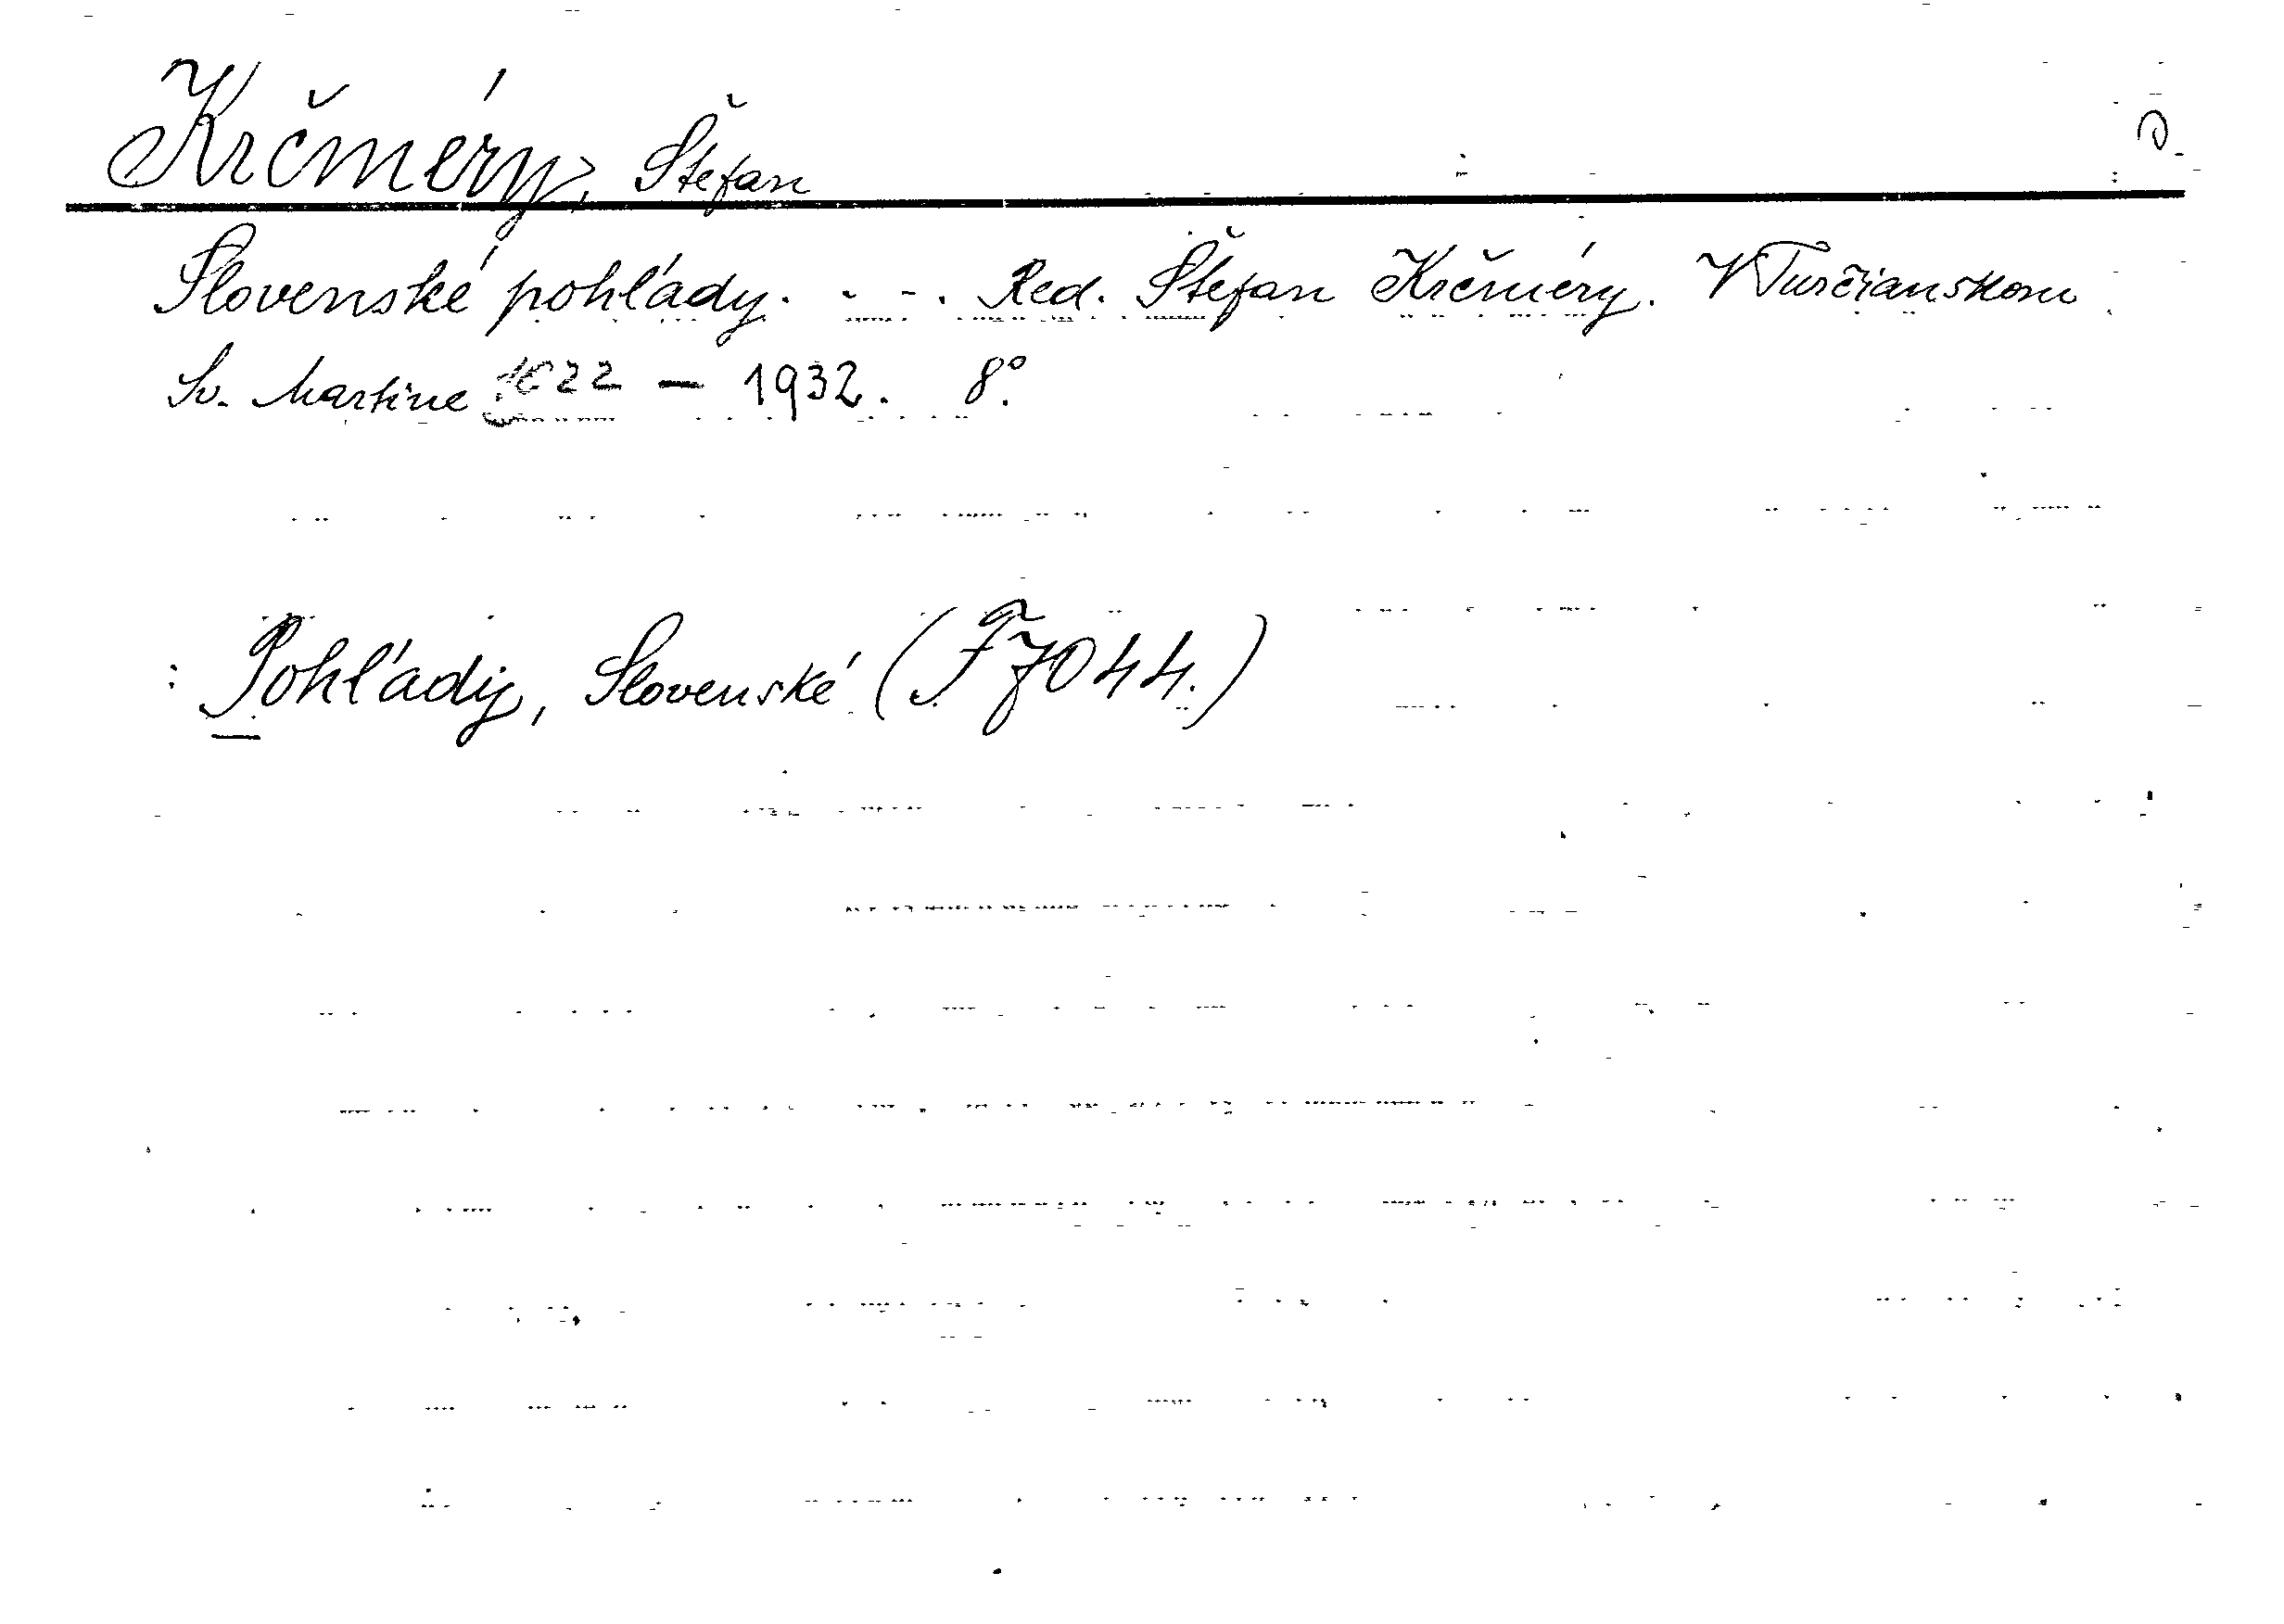 Krčméry, Štefan
Slovenské pohľady. . - . Red. Štefan Krčméry. V Turčianskom
Sv. Martine 1922 — 1932. 8°.
: Pohľady, Slovenské (F 7044.)